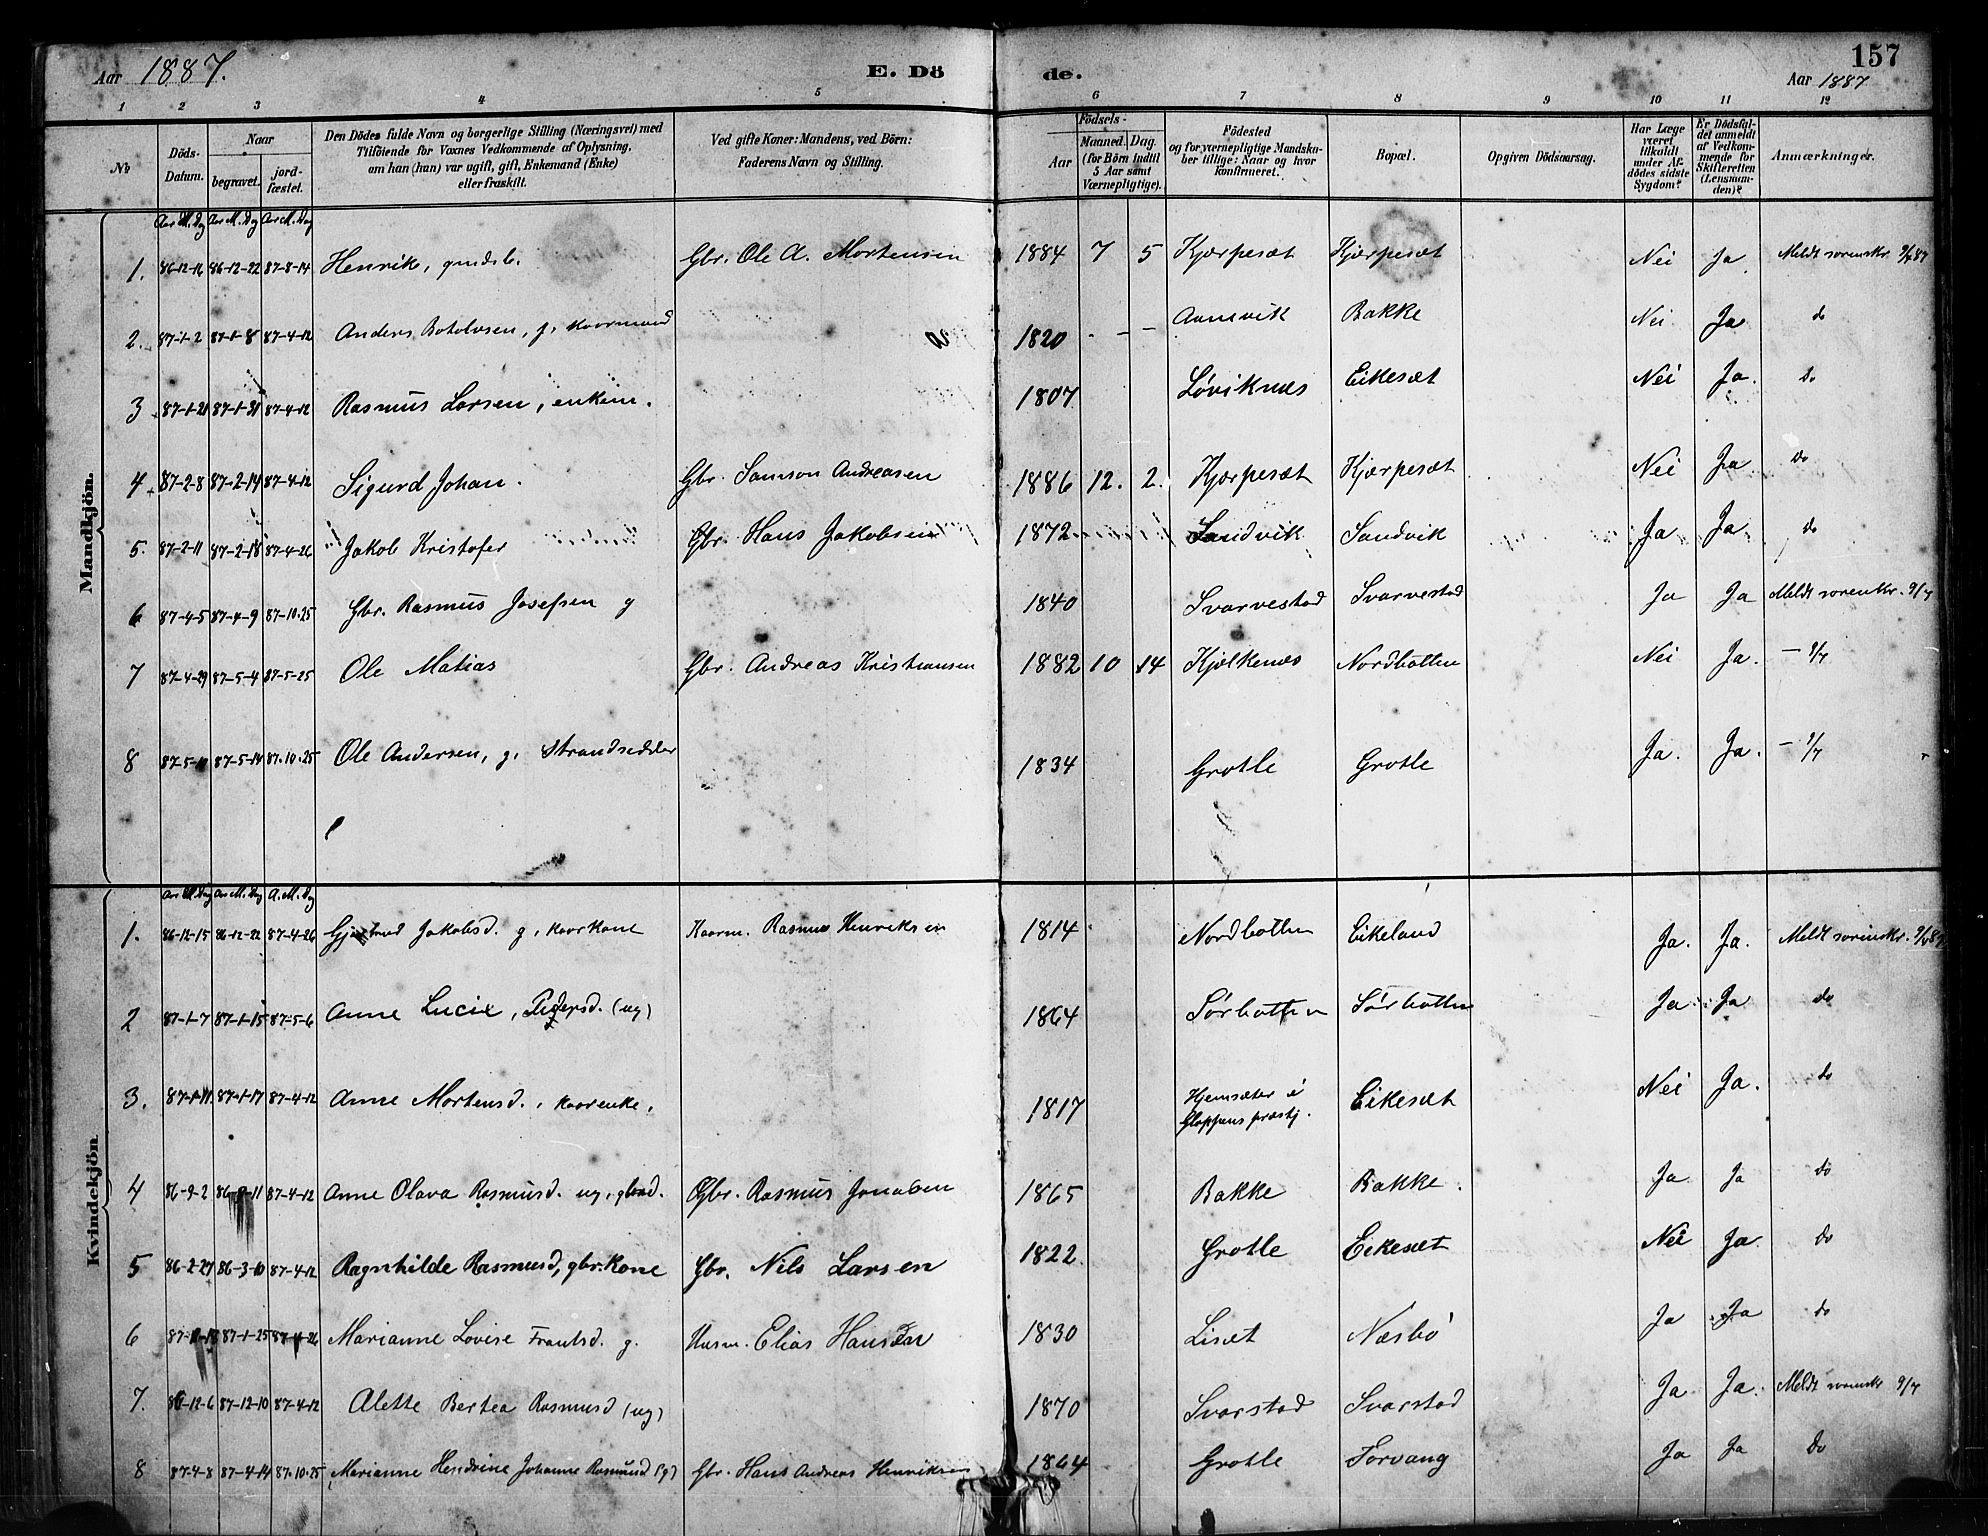 Aar 1887. E. Dö de. 157
Aar 1887
1 2 3 4 5 6 7 8 9 10 11 12
No Döds-Datum. Naar begravet. jord-fæstet. Den Dödes fulde Navn og borgerlige Stilling (Næringsvei) med Tilföiende for Voxnes Vedkommende af Oplysning, om han (hun) var ugift, gift, Enkemand (Enke) eller fraskilt. Ved gifte Koner: Mandens, ved Börn: Faderens Navn og Stilling. Födsels- Aar Maaned. Dag. (for Börn indtil 5 Aar samt Værnepligtige). Födested og for værnepligtige Mandskaber tillige: Naar og hvor konfirmeret. Bopæl. Opgiven Dödsaarsag. Har Læge været tilkaldt under Afdödes sidste Sygdom? Er Dödsfaldet anmeldt af Vedkommende for Skifteretten (Lensmanden)? Anmærkninger.
Mandkjön.
Aar M. Dag Aar M. Dag Aar M. Dag
1. 86-12-16 86-12-22 87-8-14 Henrik, Gbr. Ole A. Mortensen 1884 7 5 Kjærpesæt Kjærpesæt Nei Ja Meldt sorenskr.
2. 87-1-2 87-1-8 87-4-12 Anders Botolvsen, g, kaarmand 1820 - - - Bakke Nei Ja do
3. 87-1-21 87-1-31 87-4-12 Rasmus Larsen, enkem. 1807 Løviknes Eikesæt Nei Ja. do
4. 87-2-8 87-2-14 87-4-12 Sigurd Johan. Gbr. Samson Andreasen 1886 12. 2. Kjærpesæt Kjærpesæt Nei Ja do
5. 87-2-11 87-2-18 87-4-26 Jakob Kristofer Gbr. Hans Jakobsen 1872 Sandvik Sandvik Ja Ja do
6 87-4-5 87-4-9 87-10-25 Gbr. Rasmus Josefsen g 1840 Svarvestad Svarvestad Ja Ja Meldt sorenskr. 9/7
7 87-4-29 87-5-4 87-5-25 Ole Matias Gbr. Andreas Kristiansen 1882 10 14 Kjølkenes Nordbotten Nei Ja. - 9/7
8 87-5-10 87-5-14 87.10.25 Ole Andersen, g. Strandsidder 1834 Grotle Grotle Ja. Ja. - 9/7
Kvindekjön.
Aar M. Dag Aar M. Dag A. M. Dag
1. 86-12-15 86-12-22 87-4-26 Gjertrud Jakobsd. g, kaarkone Kaarm. Rasmus Henriksen 1814 Nordbotten Eikeland Ja. Ja. Meldt sorenskr.
2 87-1-7 87-1-15 87-5-6 Anne Lucie, Pedersd. (ug) 1864 Sørbotten Sørbotten Ja Ja do
3. 87-1-11 87-1-17 87-4-12 Anne Mortensd., kaarenke, 1817 Hjemsæter i Gloppens præstj. Eikesæt Nei Ja. do
4 86-9-2 86-9-11 87-4-12 Anne Olava Rasmusd. ug, Gbr. Rasmus 1865 Bakke Bakke. Ja Ja do
5 86-2-27 86-3-10 87-4-12 Ragnhilde Rasmusd, gbr.kone Gbr. Nils Larsen 1822 Grotle Eikesæt Nei Ja do
6 87-1-18 87-1-25 87-4-26 Marianne Lovise Frantsd. g. Husm. Elias Hansen 1830 Liset Næsbø Ja Ja do
7. 86-12-6 87-12-10 87-4-12 Alette Bertea Rasmusd (ug) 1870 Svarstad Svarstad Ja Ja. Meldt sorenskr 9/7
8 87-4-8 87-4-14 87.10.25 Marianne Hendrine Johanne Rasmusd (g) Gbr. Hans Andreas Henriksen 1864 Grotle Torvang Ja Ja do